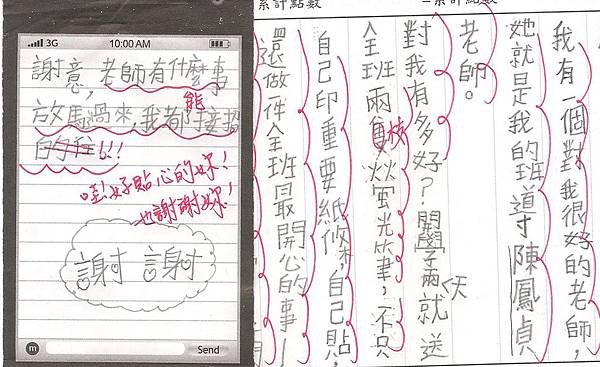 3G 10:00 AM
謝意,老師有什麼事
能
放馬過來,我都接招
的!!
哇!好貼心的妳!
也謝謝妳!
謝謝
m Send
累計點數
累計點數
我有一個對我很好的老師,
她就是我的班導陳鳳貞
老師。
對我有多好?開學兩天就送
全班兩枝螢光筆,不只
自己印重要紙條,自己貼,
還做件全班最開心的事—